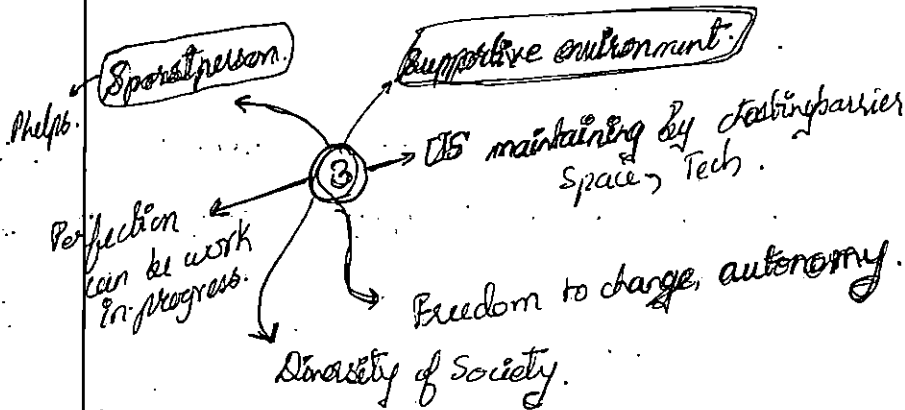 Sporstperson.
Phelps.
Supportive environment.
3
US maintaining by creating barrier
Space, Tech.
Perfection
can be work
in progress.
Freedom to change, autonomy.
Diversity of Society.